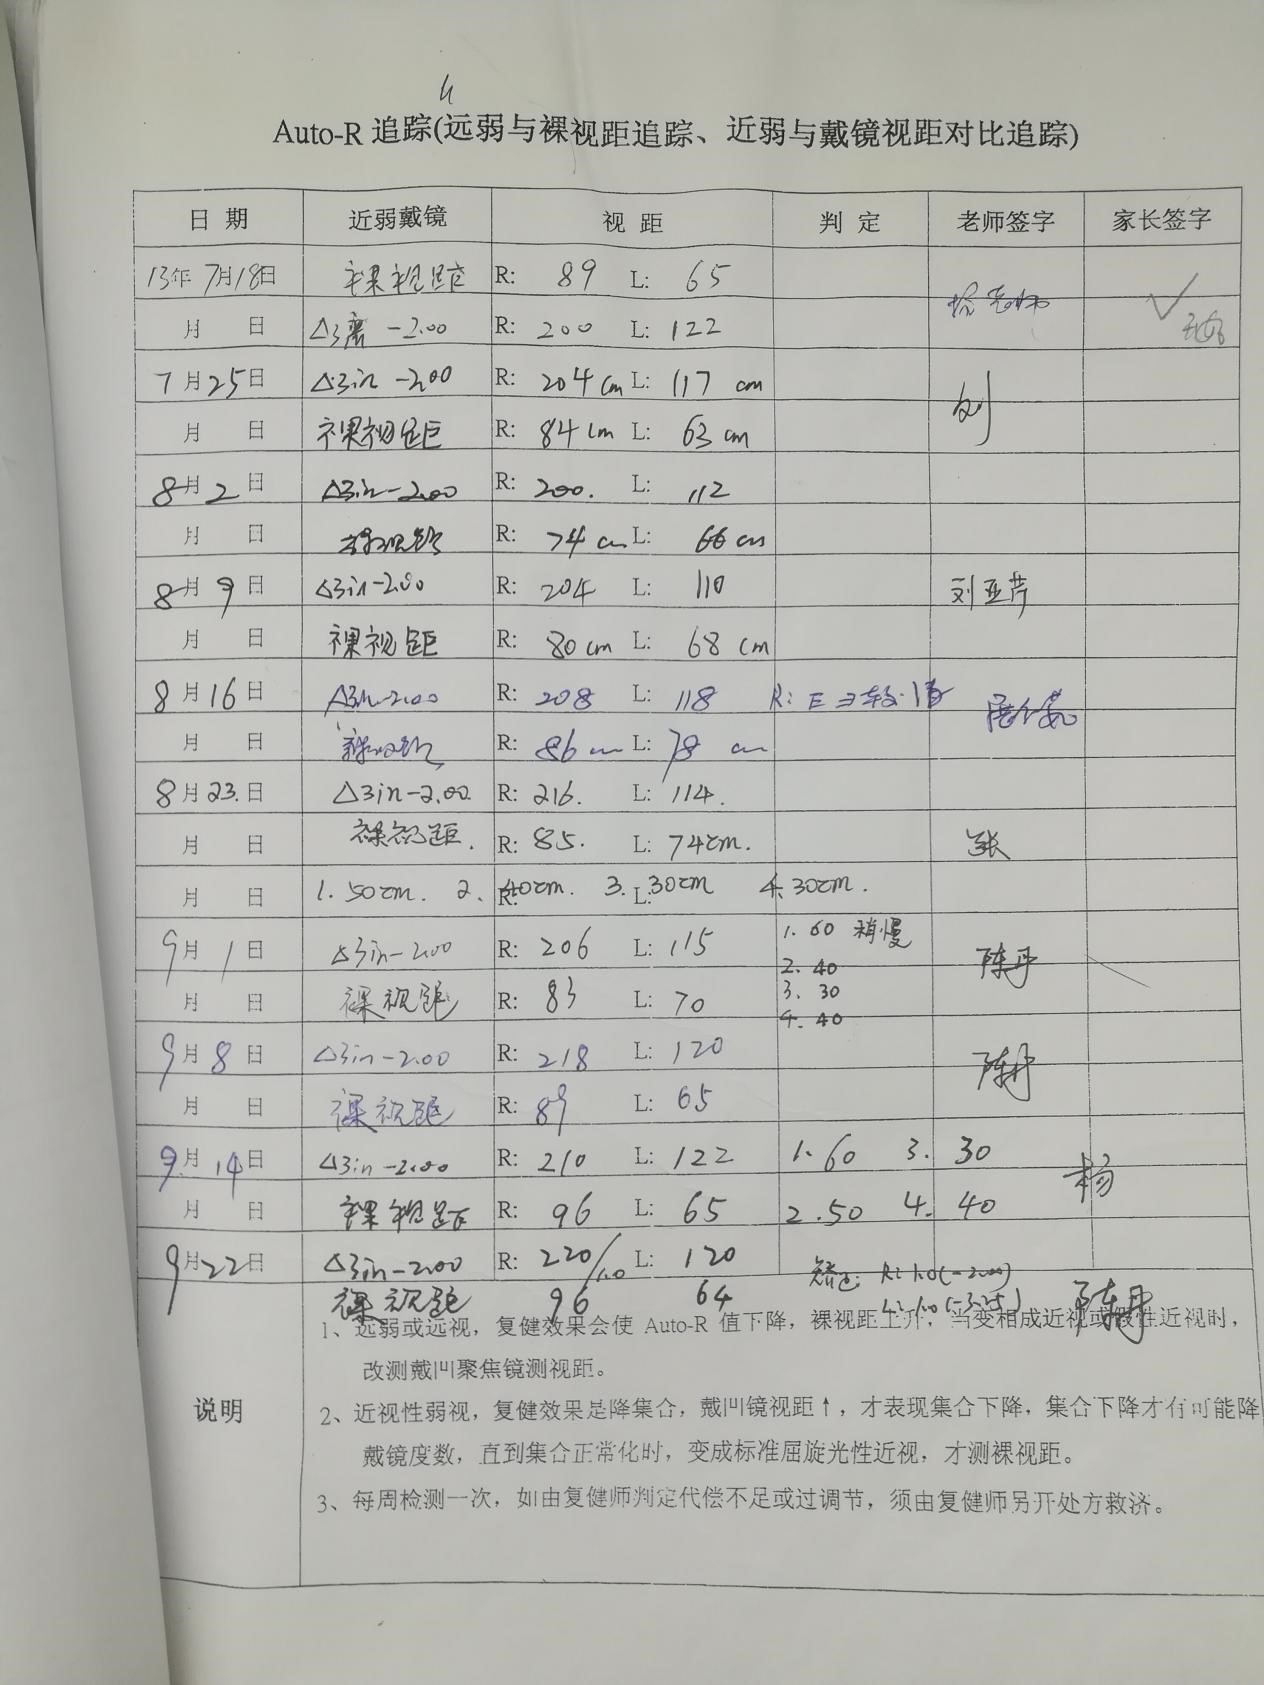 Auto-R 追踪(远弱与裸视距追踪、近弱与戴镜视距对比追踪)
日 期 近弱戴镜 视 距 判 定 老师签字 家长签字
13年 7月18日 裸视距 R: 89 L: 65
月 日 △3离 -2.00 R: 200 L: 122
7月25日 △3in -2.00 R: 204cm L: 117 cm 刘
月 日 裸视距 R: 84cm L: 63cm
8月2日 △3in-2.00 R: 200. L: 112
月 日 裸视距 R: 74cm L: 66cm
8月9日 △3in-2.00 R: 204 L: 110 刘亚芹
月 日 裸视距 R: 80cm L: 68cm
8月16日 △3in-2.00 R: 208 L: 118 R: E ヨ较慢
月 日 裸视距 R: 86cm L: 78 cm
8月23.日 △3in-2.00. R: 216. L: 114.
月 日 裸视距. R: 85. L: 74cm. 张
月 日 1. 50cm. 2. R: 40cm. 3. L: 30cm 4. 30cm.
9月1日 △3in-2.00 R: 206 L: 115 1. 60 稍慢 陈丹
2. 40
月 日 裸视距 R: 83 L: 70 3. 30
4. 40
9月8日 △3in-2.00 R: 218 L: 120 陈丹
月 日 裸视距 R: 89 L: 65
9.月14日 △3in-2.00 R: 210 L: 122 1. 60 3. 30 杨
月 日 裸视距 R: 96 L: 65 2. 50 4. 40
9月22日 △3in-2.00 R: 220/1.0 L: 120 矫正: R: 1.0(-2.00)
裸视距 96 64 L: 1.0(-3.25) 陈丹
说明
1、远弱或远视，复健效果会使 Auto-R 值下降，裸视距上升，当变相成近视或假性近视时，
改测戴凹聚焦镜测视距。
2、近视性弱视，复健效果是降集合，戴凹镜视距↑，才表现集合下降，集合下降才有可能降
戴镜度数，直到集合正常化时，变成标准屈旋光性近视，才测裸视距。
3、每周检测一次，如由复健师判定代偿不足或过调节，须由复健师另开处方救济。